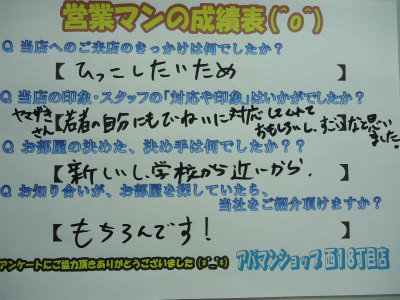 営業マンの成績表(^o^)
Q 当店へのご来店のきっかけは何でしたか?
【 ひっこしたいため 】
Q 当店の印象・スタッフの「対応や印象」はいかがでしたか?
ヤマザキさん【若者の自分にもていねいに対応してくれて
おもしろいし、すごいなと思いました。
Q お部屋の決めた、決め手は何でしたか??
【 新しいし、学校から近いから。 】
Q お知り合いが、お部屋を探していたら、
当社をご紹介頂けますか?
【 もちろんです! 】
アンケートにご協力頂きありがとうございました(*^_^*)
アパマンショップ 西18丁目店